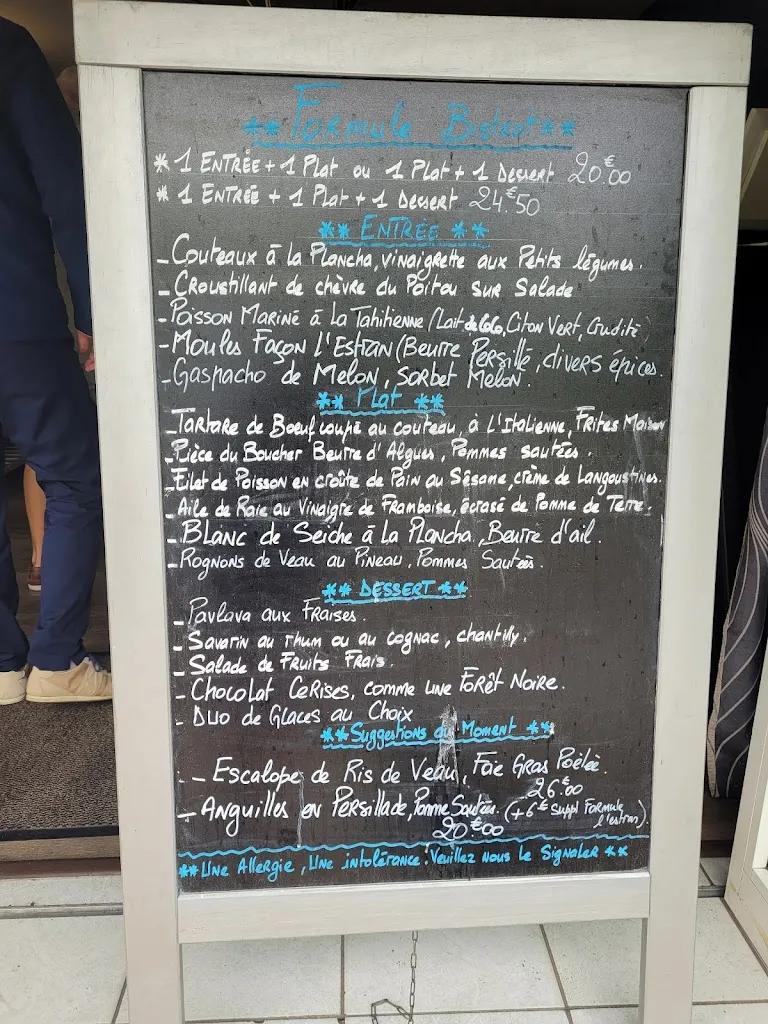 ** Formule Bistrot **
* 1 ENTRÉE + 1 Plat ou 1 Plat + 1 Dessert 20€00
* 1 ENTRÉE + 1 Plat + 1 Dessert 24€50
** ENTRÉE **
- Couteaux à la Plancha, vinaigrette aux Petits légumes.
- Croustillant de chèvre du Poitou sur Salade
- Poisson Mariné à La Tahitienne (Lait de Coco, Citon Vert, Crudité)
- Moules Façon L'Estran (Beurre Persillé, divers épices.
- Gaspacho de Melon, Sorbet Melon.
** Plat **
- Tartare de Boeuf coupé au couteau, à L'Italienne, Frites Maison
- Pièce du Boucher Beurre d'Algues, Pommes sautées.
- Filet de Poisson en croûte de Pain au Sésame, crème de Langoustines.
- Aile de Raie au Vinaigre de Framboise, écrasé de Pomme de Terre.
- Blanc de Seiche à la Plancha, Beurre d'ail.
- Rognons de Veau au Pineau, Pommes Sautées.
** DESSERT **
- Pavlova aux Fraises.
- Savarin au rhum ou au cognac, chantilly.
- Salade de Fruits Frais.
- Chocolat Cerises, comme une Forêt Noire.
- Duo de Glaces au Choix
** Suggestions du Moment **
- Escalope de Ris de Veau, Foie Gras Poêlée.
26€00
- Anguilles en Persillade, Pomme Sautées. (+6€ Suppl Formule
l'estran).
20€00
** Une Allergie, Une intolérance, Veuillez nous le Signaler **